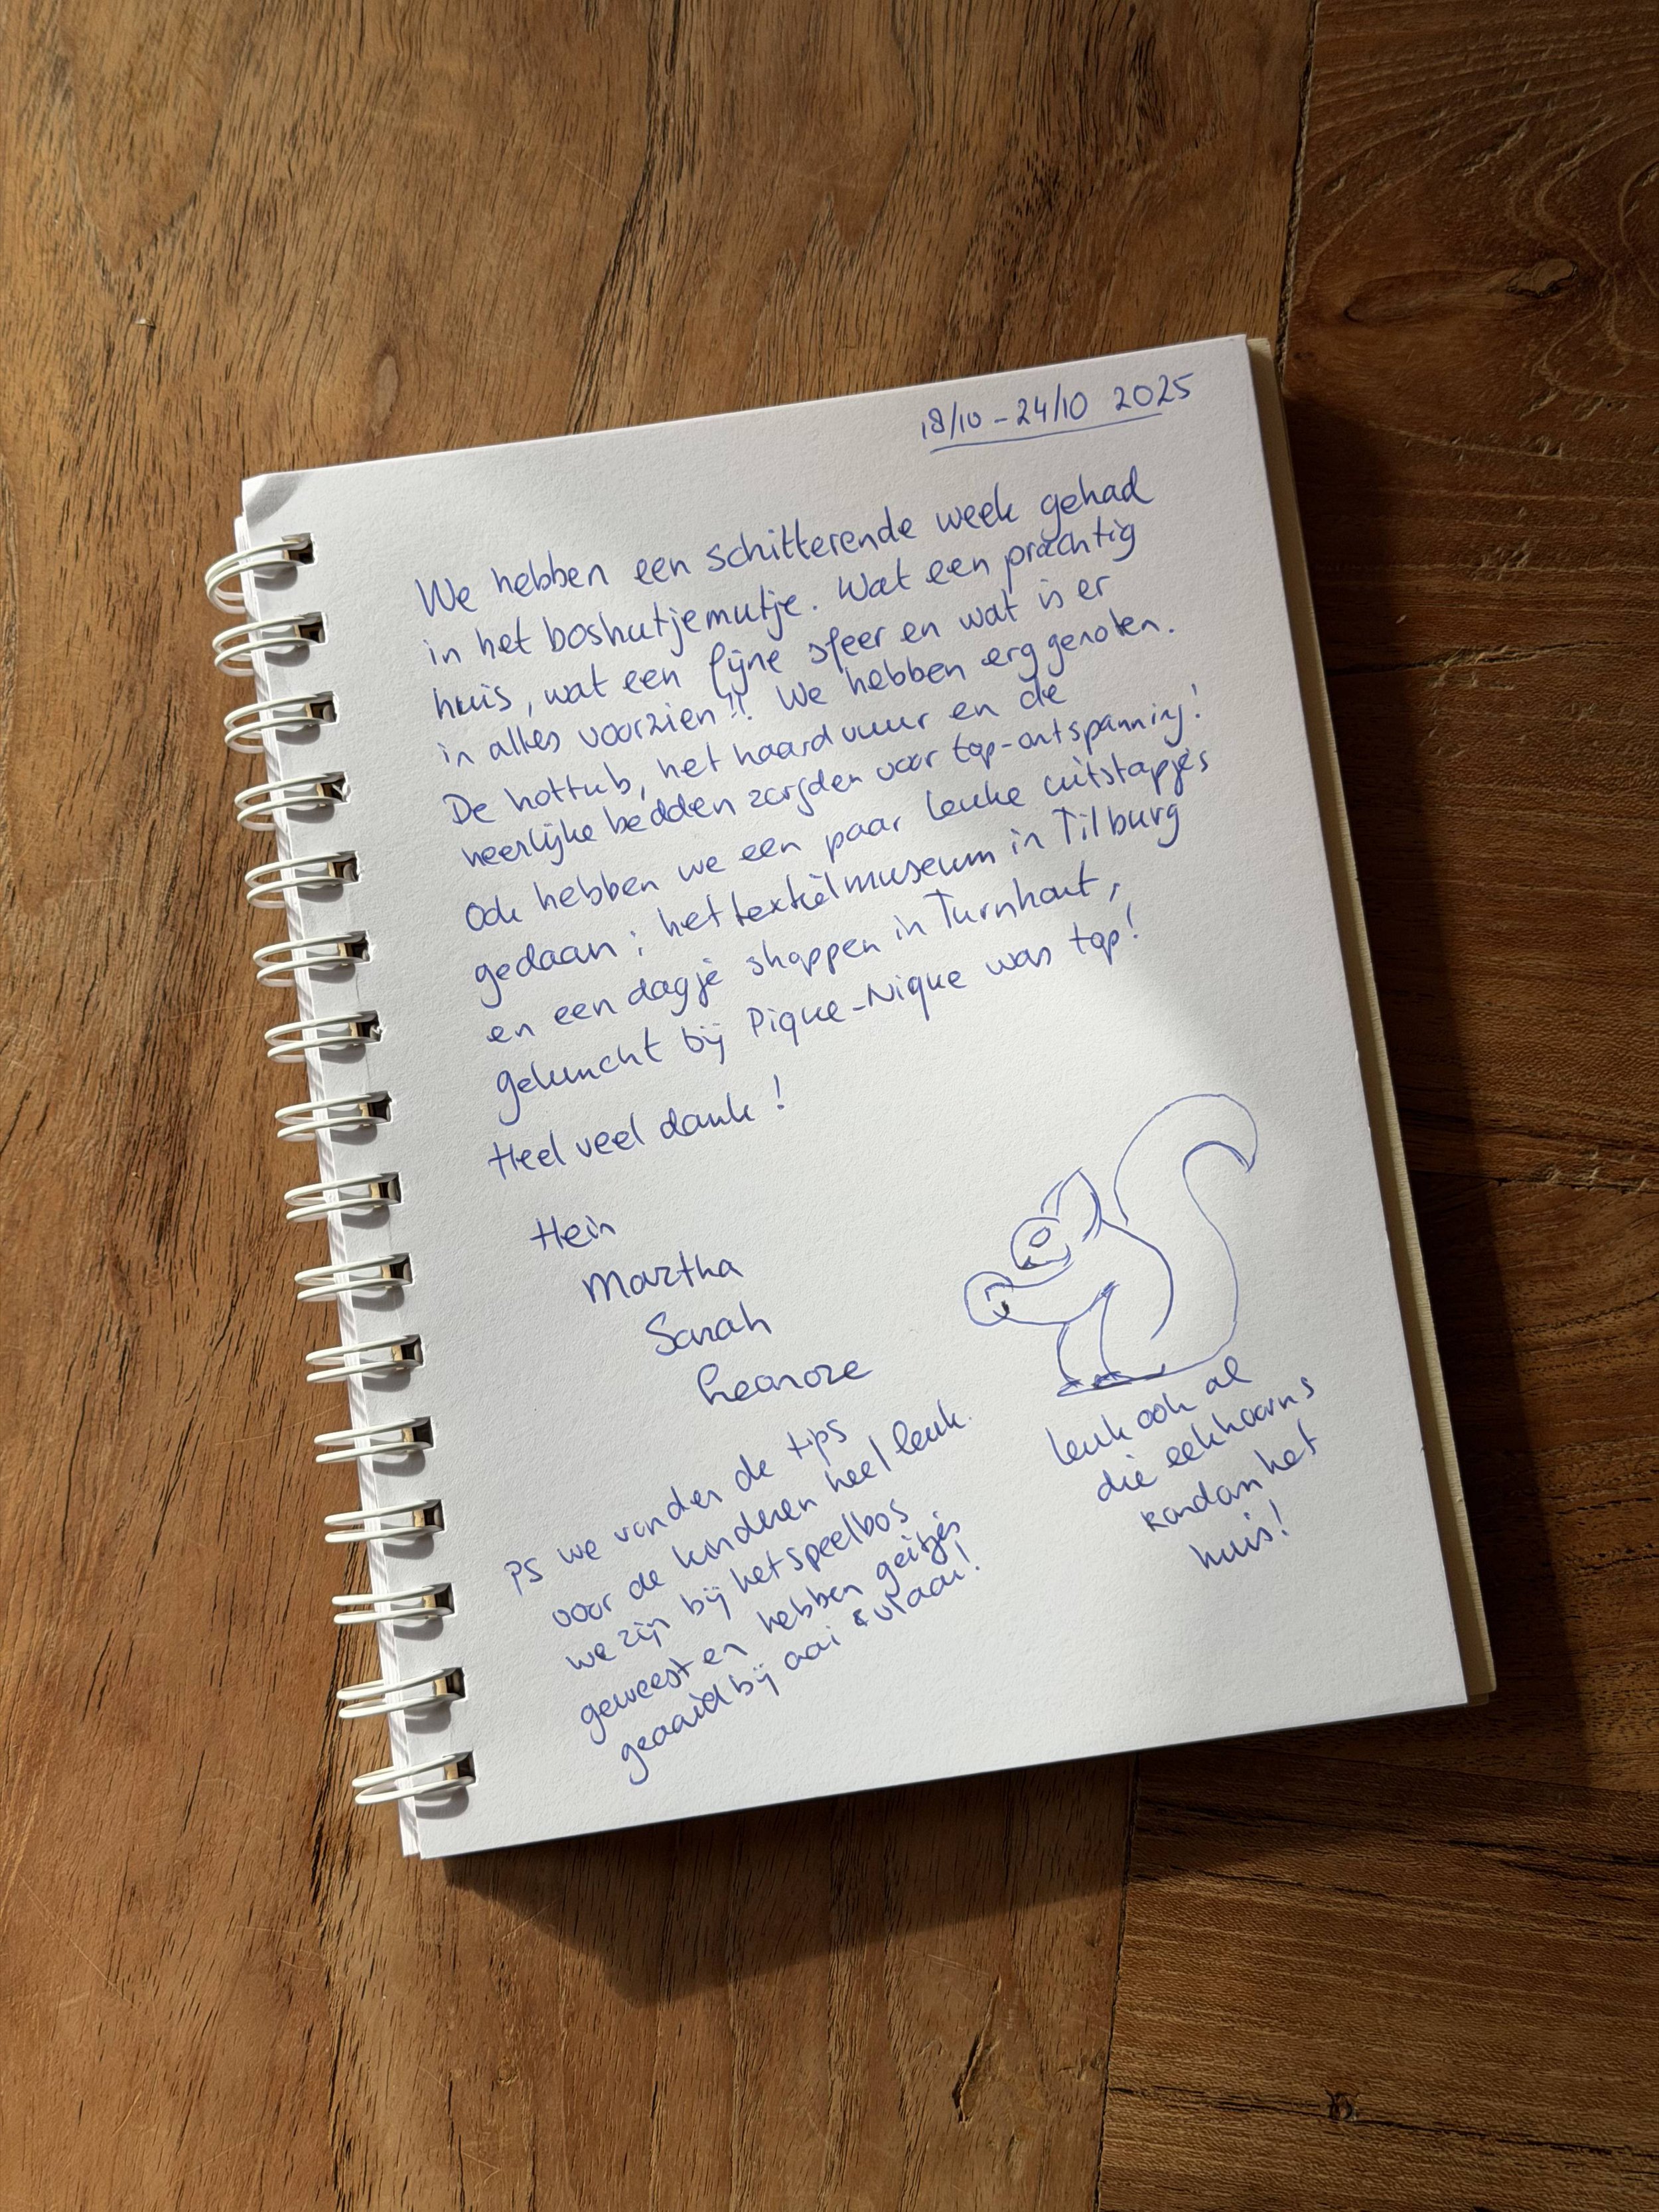 18/10 - 24/10 2025
We hebben een schitterende week gehad
in het boshutjemutje. Wat een prachtig
huis, wat een fijne sfeer en wat is er
in alles voorzien!! We hebben erg genoten.
De hottub, het haardvuur en de
heerlijke bedden zorgden voor top-ontspanning!
Ook hebben we een paar leuke uitstapjes
gedaan; het textielmuseum in Tilburg
en een dagje shoppen in Turnhout,
geluncht bij Pique-Nique was top!
Heel veel dank!
Hein
Martha
Sarah
Leonore
PS we vonden de tips
voor de kinderen heel leuk.
we zijn bij het speelbos
geweest en hebben geitjes
geaaid bij aai & vlaai!
leuk ook al
die eekhoorns
rondom het
huis!